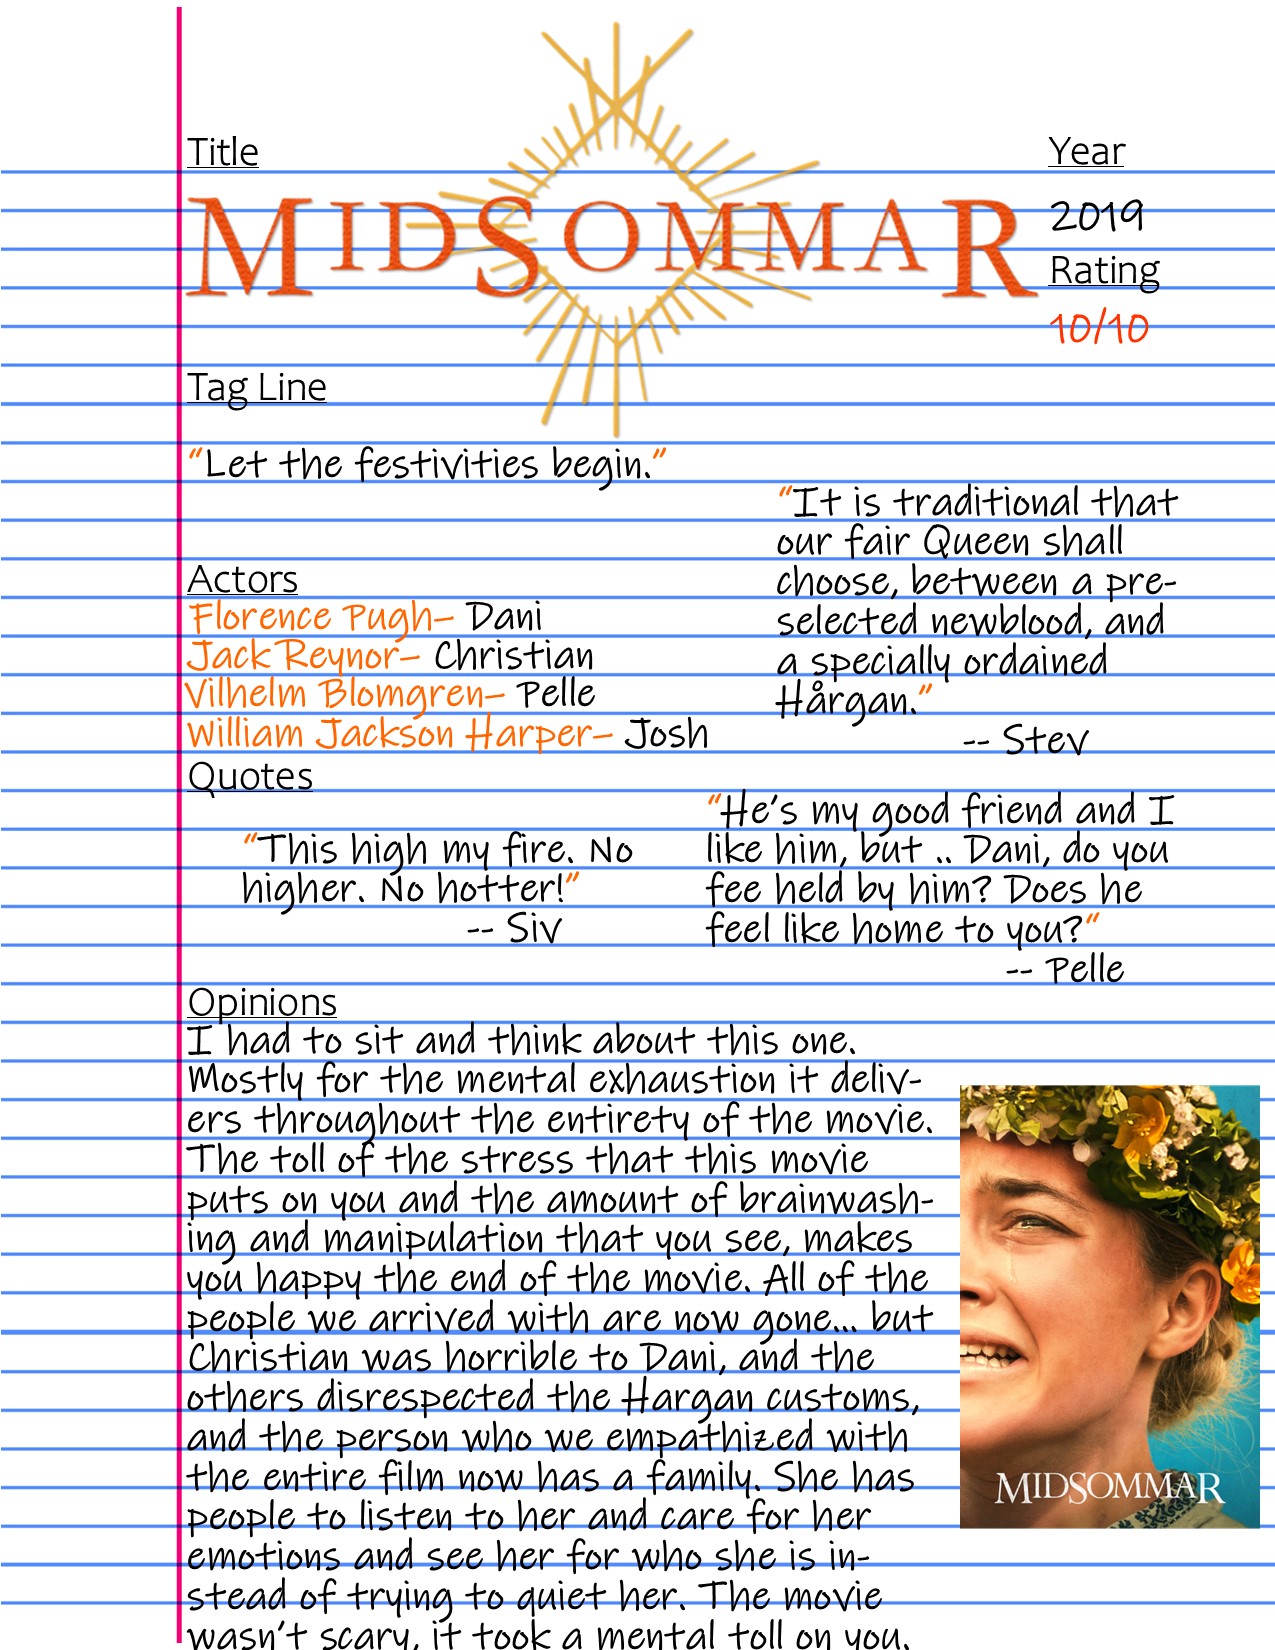 Title
MIDSOMMAR
Year
2019
Rating
10/10
Tag Line
“Let the festivities begin.”
“It is traditional that
our fair Queen shall
choose, between a pre-
selected newblood, and
a specially ordained
Hårgan.”
-- Stev
Actors
Florence Pugh– Dani
Jack Reynor– Christian
Vilhelm Blomgren– Pelle
William Jackson Harper– Josh
Quotes
“This high my fire. No
higher. No hotter!”
-- Siv
“He’s my good friend and I
like him, but .. Dani, do you
fee held by him? Does he
feel like home to you?“
-- Pelle
Opinions
I had to sit and think about this one.
Mostly for the mental exhaustion it deliv-
ers throughout the entirety of the movie.
The toll of the stress that this movie
puts on you and the amount of brainwash-
ing and manipulation that you see, makes
you happy the end of the movie. All of the
people we arrived with are now gone... but
Christian was horrible to Dani, and the
others disrespected the Hargan customs,
and the person who we empathized with
the entire film now has a family. She has
people to listen to her and care for her
emotions and see her for who she is in-
stead of trying to quiet her. The movie
wasn’t scary, it took a mental toll on you.
MIDSOMMAR